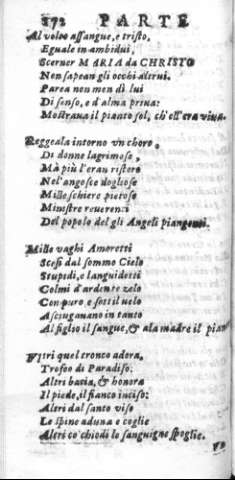 272 PARTE
Al volto assangue, e tristo,
Eguale in ambidui,
Scerner MARIA da CHRISTO
Non sapean gli occhi altrui.
Parea non men di lui
Di senso, e d'alma priua:
Mostraua il pianto sol, ch'ell'era viua.
Reggeala intorno vn choro,
Di donne lagrimose,
Mà più l'eran ristoro
Nel'angosce dogliose
Mille schiere pietose
Ministre reuerenti
Del popolo del gli Angeli piangenti.
Mille vaghi Amoretti
Scesi dal sommo Cielo
Stupidi, e languidetti
Colmi d'ardente zelo
Con puro e sottil velo
Asciugauano in tanto
Al figlio il sangue, & ala madre il pian
Altri quel tronco adora,
Trofeo di Paradiso.
Altri bacia, & honora
Il piede, il fianco inciso:
Altri dal santo viso
Le spine aduna e coglie
Altri co' chiodi le sanguigne spoglie.